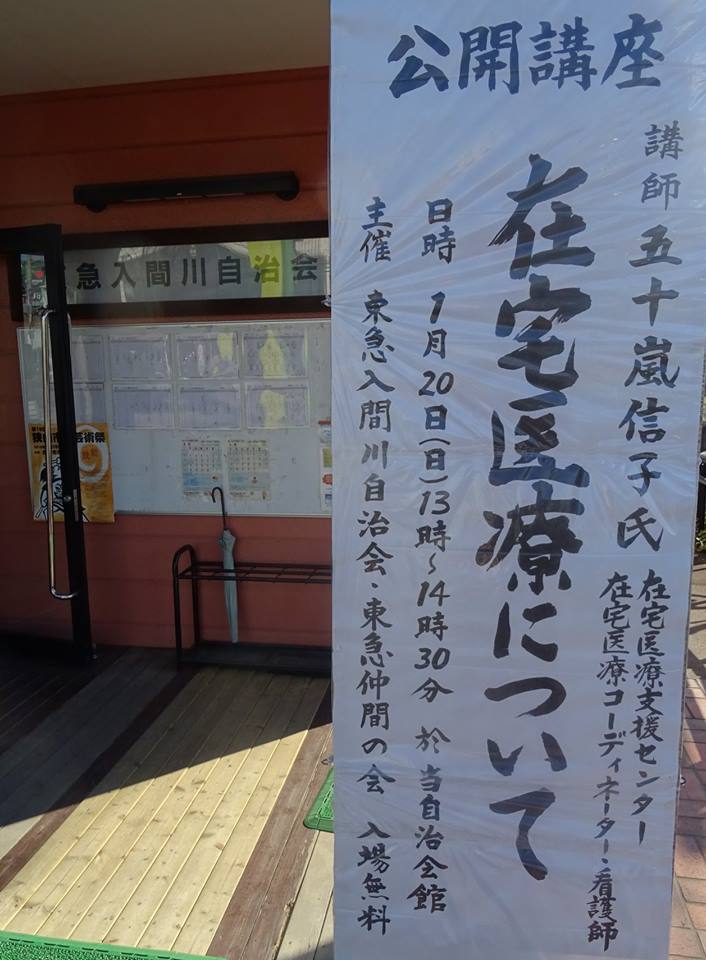 公開講座
講師 五十嵐信子氏
在宅医療支援センター
在宅医療コーディネーター・看護師
在宅医療について
日時 1月20日(日)13時~14時30分 於 当自治会館
主催 東急入間川自治会・東急仲間の会 入場無料
急入間川自治会